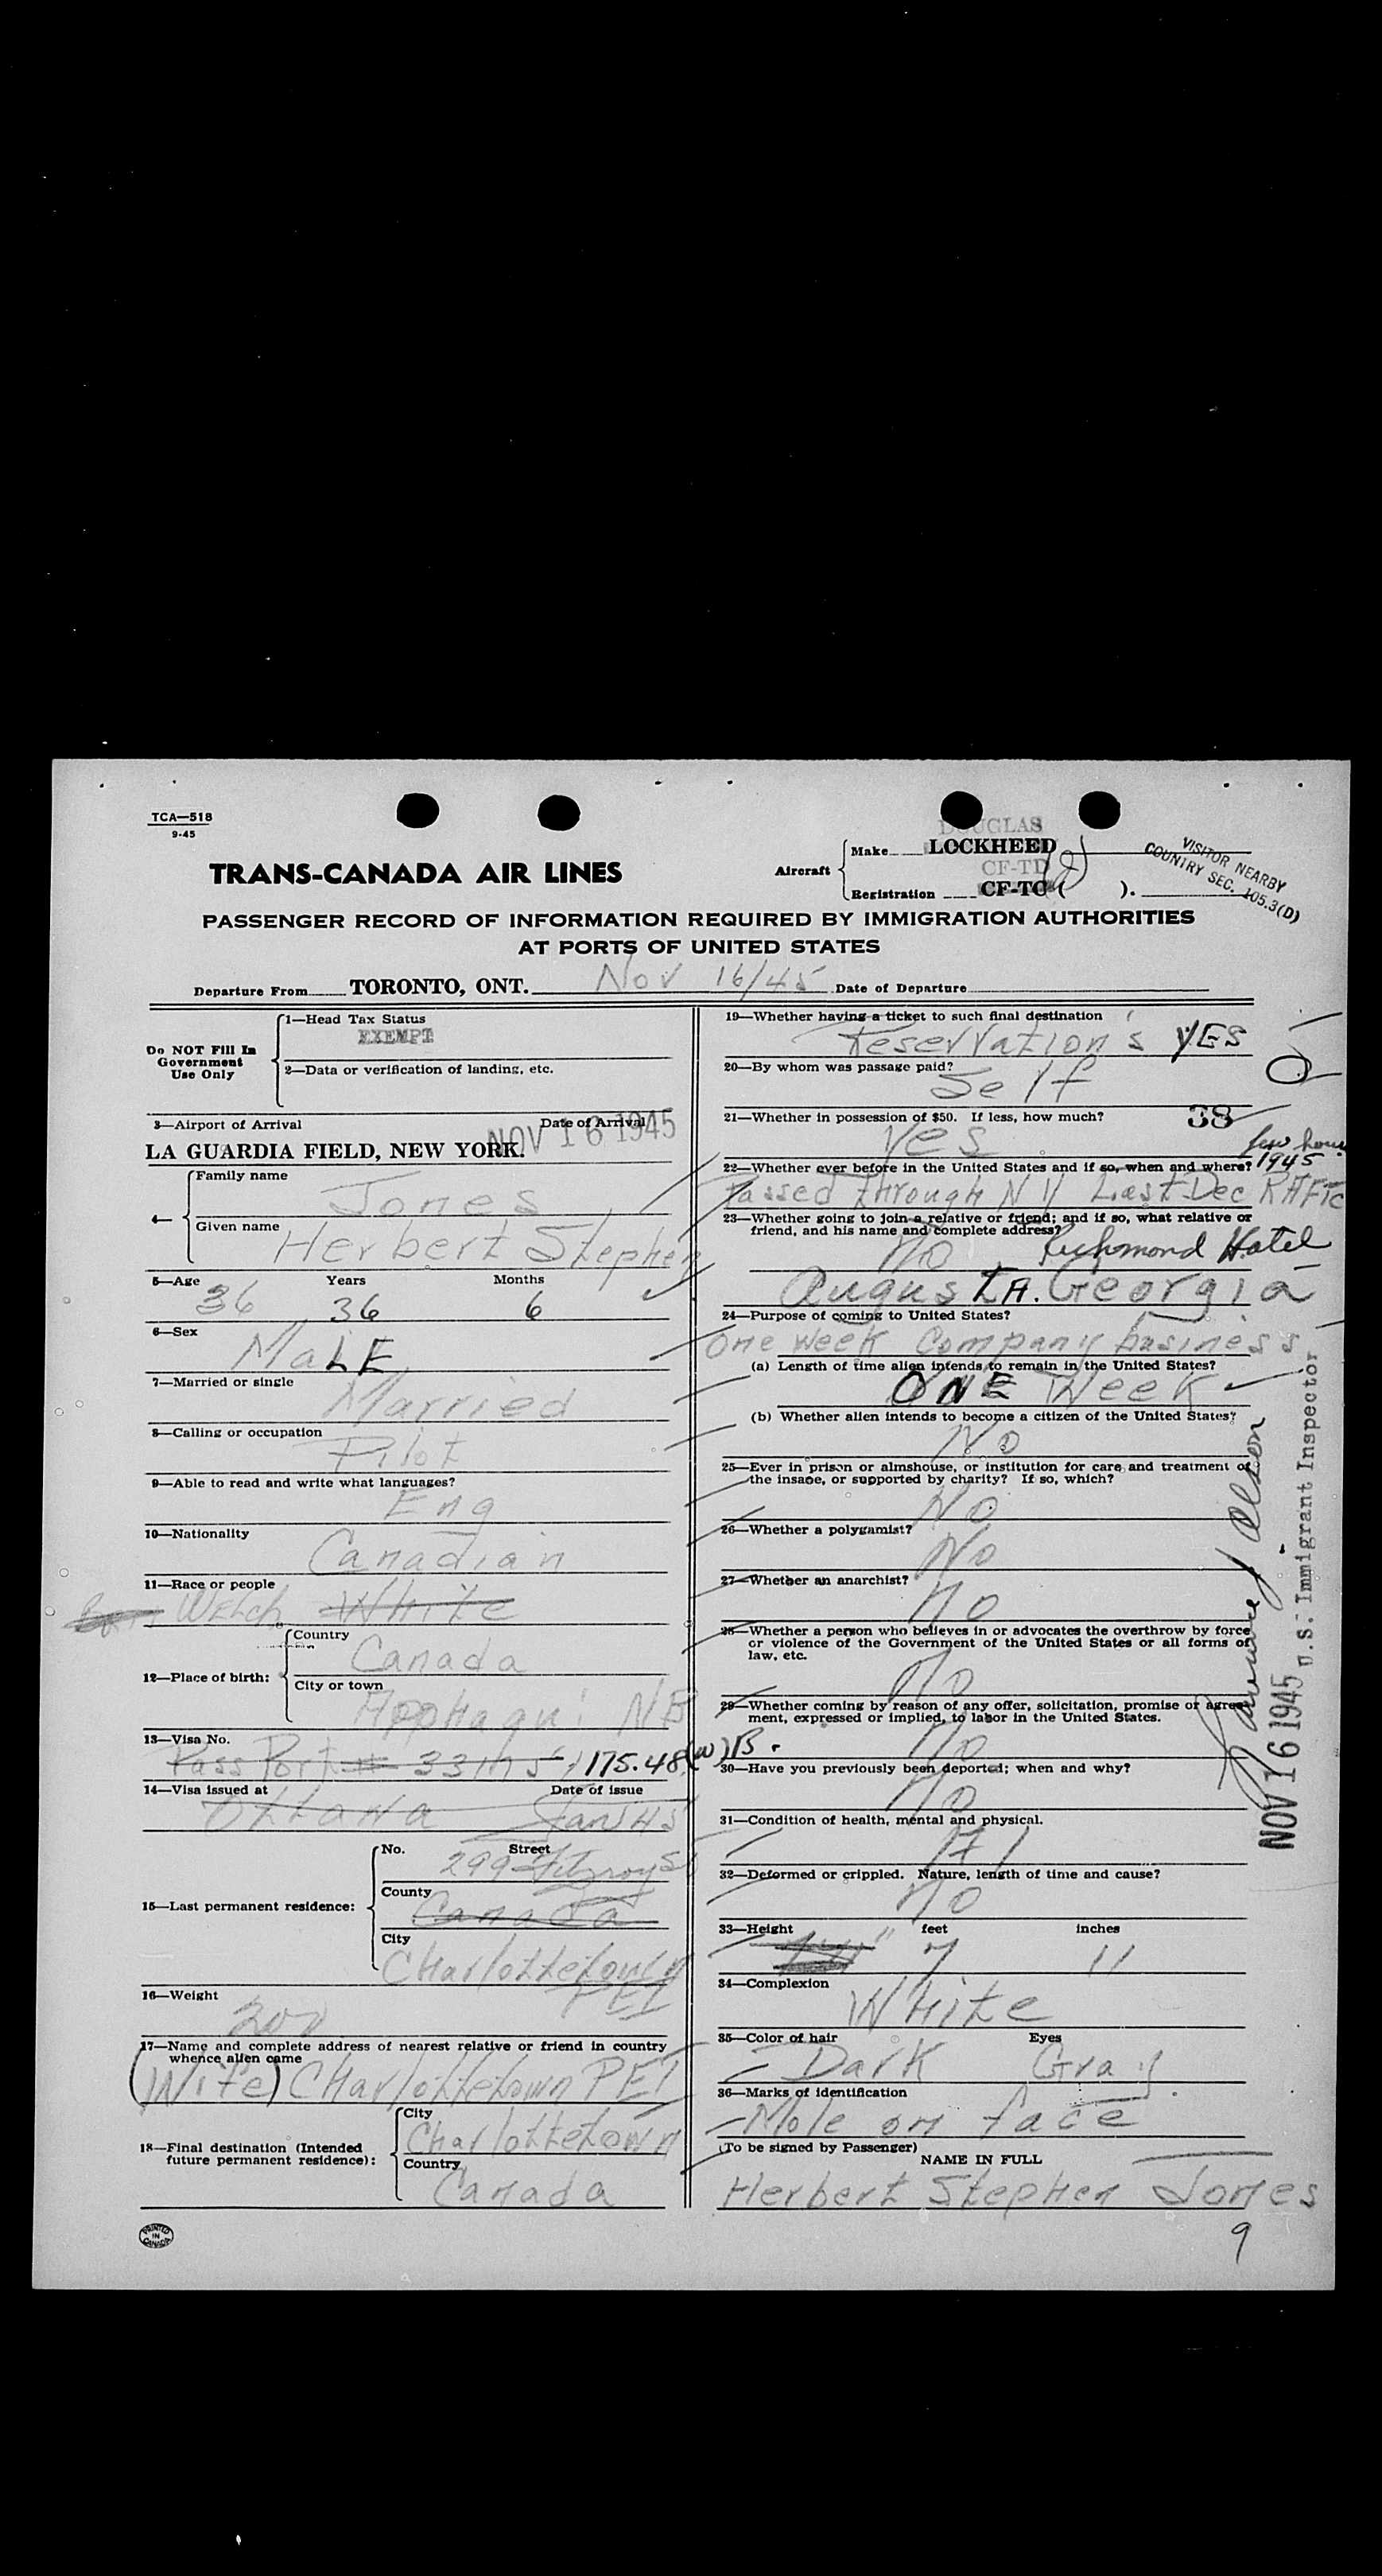 TCA—518
9-45
DOUGLAS
Make LOCKHEED
TRANS-CANADA AIR LINES
Aircraft
CF-TD
Registration CF-TC ( ).
VISITOR NEARBY
COUNTRY SEC. 105.3(D)
PASSENGER RECORD OF INFORMATION REQUIRED BY IMMIGRATION AUTHORITIES
AT PORTS OF UNITED STATES
Departure From TORONTO, ONT. Nov 16/45 Date of Departure
Do NOT Fill In
Government
Use Only
1—Head Tax Status
EXEMPT
2—Data or verification of landing, etc.
3—Airport of Arrival Date of Arrival
LA GUARDIA FIELD, NEW YORK. NOV 16 1945
4—
Family name
Jones
Given name
Herbert Stephen
5—Age Years Months
36 36 6
6—Sex
MaLE
7—Married or single
Married
8—Calling or occupation
Pilot
9—Able to read and write what languages?
Eng
10—Nationality
Canadian
11—Race or people
Welch White
12—Place of birth:
Country
Canada
City or town
NB
13—Visa No.
Pass Port 175.48(w)B.
14—Visa issued at Date of issue
Ottawa Jan 45
15—Last permanent residence:
No. Street
299 Fitzroy St
County
Canada
City
Charlottetown
PEI
16—Weight
200
17—Name and complete address of nearest relative or friend in country
whence alien came
(Wife) Charlottetown PEI
18—Final destination (Intended
future permanent residence):
City
Charlottetown
Country
Canada
PRINTED
IN
CANADA
19—Whether having a ticket to such final destination
Reservation s YES
20—By whom was passage paid?
Self
21—Whether in possession of $50. If less, how much? 38
Yes
few hours
22—Whether ever before in the United States and if so, when and where? 1945
Passed through N Y Last Dec RAFTC
23—Whether going to join a relative or friend; and if so, what relative or
friend, and his name and complete address?
No Richmond Hotel
Augusta. Georgia
24—Purpose of coming to United States?
One week Company business
(a) Length of time alien intends to remain in the United States?
ONE Week
(b) Whether alien intends to become a citizen of the United States?
No
25—Ever in prison or almshouse, or institution for care and treatment of
the insane, or supported by charity? If so, which?
No
26—Whether a polygamist?
No
27—Whether an anarchist?
No
28—Whether a person who believes in or advocates the overthrow by force
or violence of the Government of the United States or all forms of
law, etc.
No
29—Whether coming by reason of any offer, solicitation, promise or agree-
ment, expressed or implied, to labor in the United States.
No
30—Have you previously been deported; when and why?
No
31—Condition of health, mental and physical.
A1
32—Deformed or crippled. Nature, length of time and cause?
No
33—Height feet inches
11
34—Complexion
White
35—Color of hair Eyes
Dark Gray
36—Marks of identification
Mole on face
(To be signed by Passenger)
NAME IN FULL
Herbert Stephen Jones
9
NOV 16 1945 U.S. Immigrant Inspector